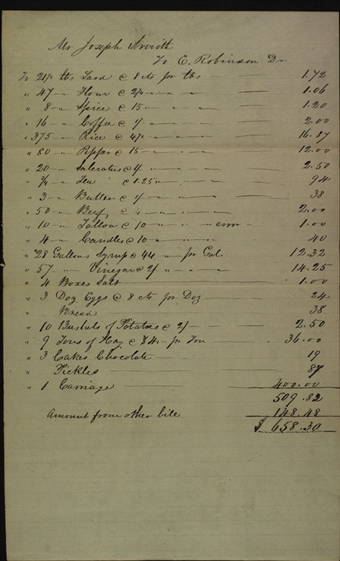 Mr Joseph
To E. Robinson Dr
To 21½ lbs Lard @ 8 cts for lbs 1.72
" 47 - Flour @ 2¼ 1.06
" 8 - Spice @ 15 - 1.20
" 16 - Coffee @ 2.00
" 375 - Rice @ 4½ - 16.87
" 80 - Peppar @ 15 - 12.00
" 20 - Saleratus @ 2.50
" ¾ - Tea @ 1.25 - 94
" 3 - Butter @ 38
" 50 - Beef @ 4 2.00
" 10 - Tallow @ 10 1.00
" 4 - Candles @ 10 - 40
" 28 Gallons Syrup @ 44 - for Gal. 12.32
" 57 - Vinegar @ 2/ - 14.25
" 4 Boxes Salt 1.00
" 3 Doz Eggs @ 8 cts for Doz 24
" Bread 38
" 10 Bushels of Potatoes @ 2/ - 2.50
" 9 Tons of Hay @ $4. for Ton 36.00
" 3 Cakes Chocolate 19
" Pickles 87
" 1 Carriage 400.00
509.82
Amount from other bill 148.48
$ 658.30